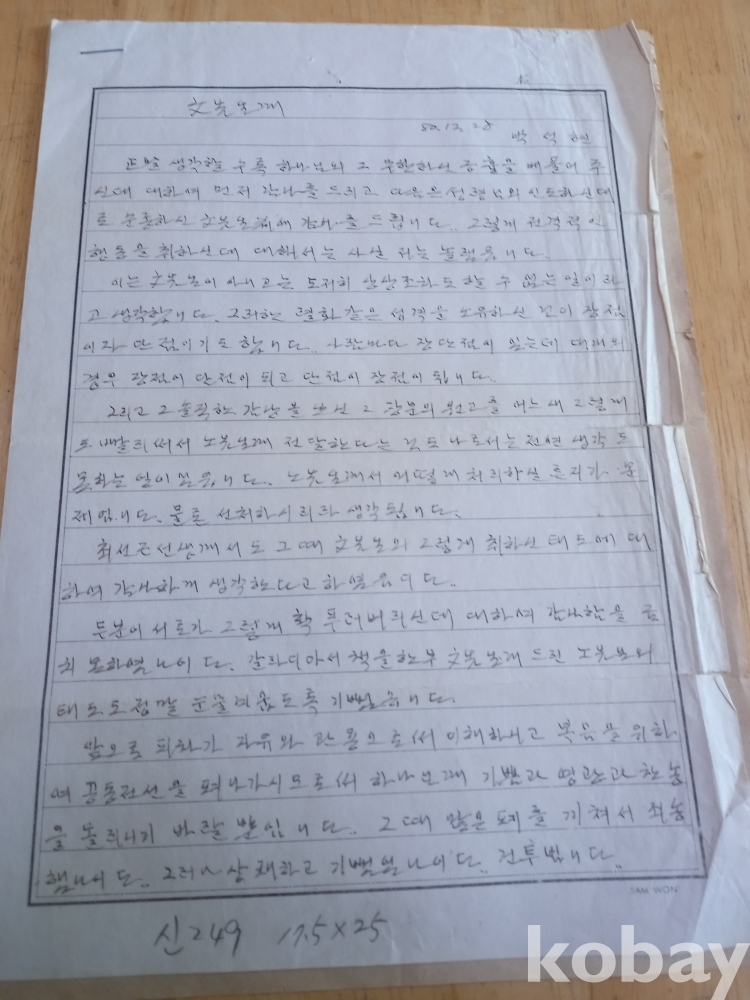 文목님께
82. 12. 28
박석현
正말 생각할수록 하나님의 그 무한하신 긍휼을 베풀어 주
신데 대하여 먼저 감사를 드리고 다음은 성령님의 인도하신대
로 순종하신 文목님께 감사를 드립니다. 그렇게 전격적인
행동을 취하신데 대해서는 사실 저는 놀랬읍니다.
이는 文목님이 아니고는 도저히 상상조차도 할 수 없는 일이라
고 생각합니다. 그러한 열화같은 성격을 소유하신 것이 장점
이자 단점이기도 합니다. 사람마다 장단점이 있는데 대개의
경우 장점이 단점이 되고 단점이 장점이 됩니다.
그리고 그 솔직한 그 장문의 원고를 어느새 그렇게
도 빨리 써서 노목님께 전달한다는 것도 나로서는 전연 생각도
못하는 일이였읍니다. 노목님께서 어떻게 처리하실 런지가 문
제입니다. 물론 선처하시리라 생각됩니다.
최선생께서도 그때 文목님의 그렇게 취하신 태도에 대
하여 감사하게 생각한다고 하였읍니다.
두분이 서로가 그렇게 확 풀어버리신데 대하여 감사함을 금
치 못하였나이다. 갈라디아서 책을 한부 文목님께 드린 노목님의
태도도 정말 눈물겨웁도록 기뻤읍니다.
앞으로 피차가 자유와 관용으로써 이해하시고 복음을 위하
여 공동전선을 펴나가시므로써 하나님께 기쁨과 영광과 찬송
을 돌리시기 바랄 뿐입니다. 그때 많은 폐를 끼쳐서 죄송
했나이다. 그러나 상쾌하고 기뻤었나이다. 건투빕니다.
SAM WON
신249 17.5×25
kobay